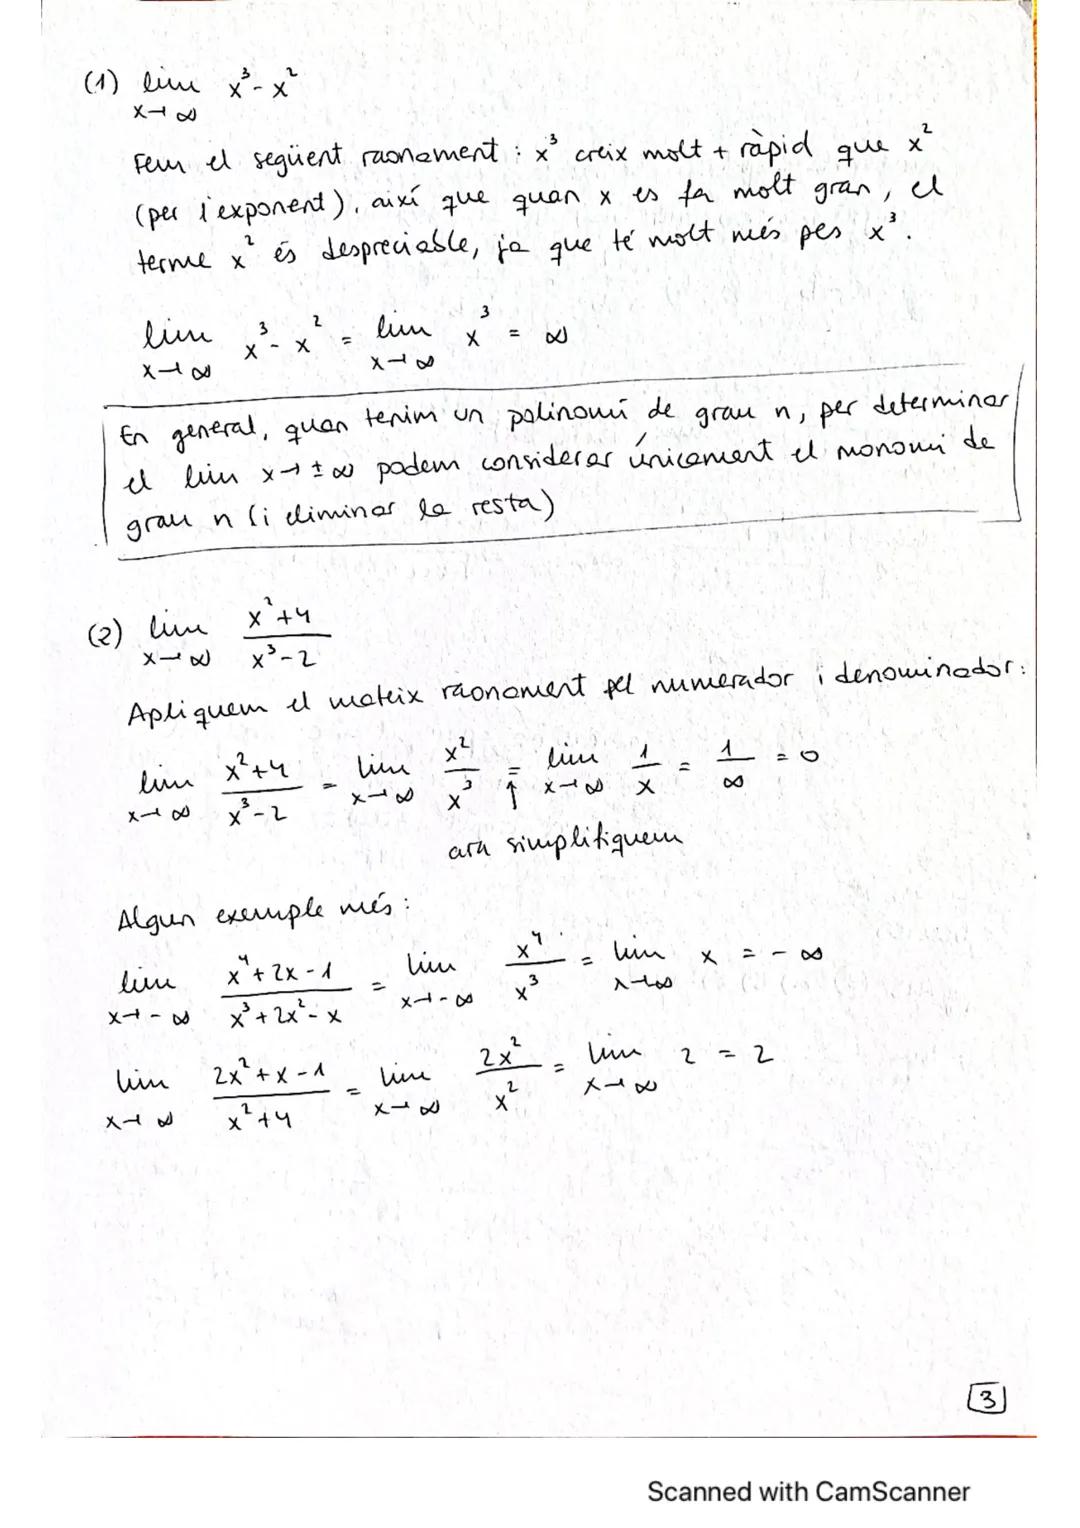 (1) lim x³ - x²
x→∞
Fem el següent raonament : x³ creix molt + ràpid que x²
(per l'exponent), així que quan x es fa molt gran, el
terme x² és despreciable, ja que té molt més pes x³.
lim x³ - x² = lim x³ = ∞
x→∞ x→∞
En general, quan tenim un polinomi de grau n, per determinar
el lim x→±∞ podem considerar únicament el monomi de
grau n (i eliminar la resta)
(2) lim (x²+4)/(x³-2)
x→∞
Apliquem el mateix raonament pel numerador i denominador:
lim (x²+4)/(x³-2) = lim x²/x³ = lim 1/x = 1/∞ = 0
x→∞ x→∞ ↑ x→∞
ara simplifiquem
Algun exemple més :
lim (x⁴+2x-1)/(x³+2x²-x) = lim x⁴/x³ = lim x = -∞
x→-∞ x→-∞ x→∞
lim (2x²+x-1)/(x²+4) = lim 2x²/x² = lim 2 = 2
x→∞ x→∞ x→∞
3
Scanned with CamScanner